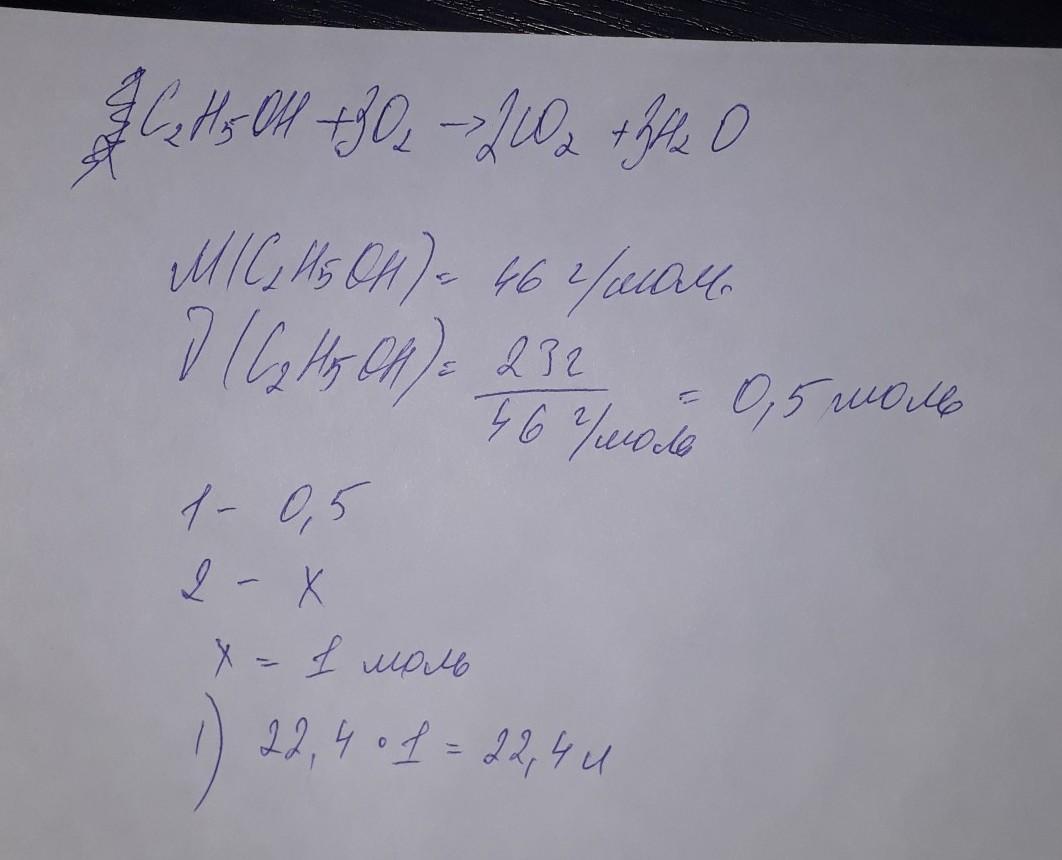 C₂H₅OH + 3O₂ → 2CO₂ + 3H₂O
M(C₂H₅OH) = 46 г/моль
ν(C₂H₅OH) = 23г / 46 г/моль = 0,5 моль
1 - 0,5
2 - x
x = 1 моль
1) 22,4 • 1 = 22,4 л